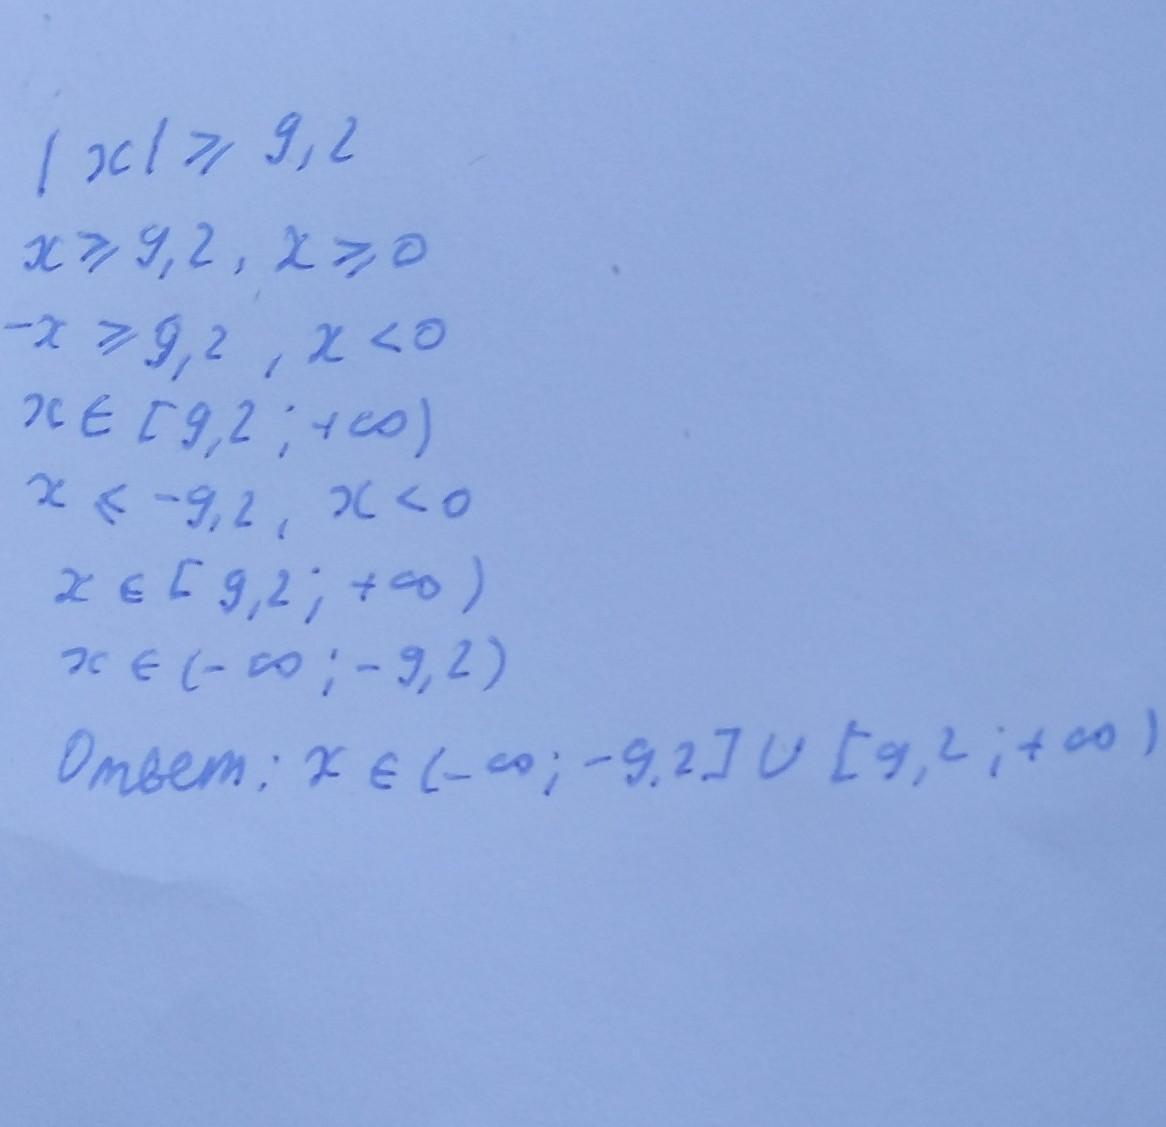 |x| ⩾ 9,2
x ⩾ 9,2, x ⩾ 0
-x ⩾ 9,2, x < 0
x ∈ [9,2; +∞)
x ⩽ -9,2, x < 0
x ∈ [9,2; +∞)
x ∈ (-∞; -9,2)
Ответ: x ∈ (-∞; -9,2] ∪ [9,2; +∞)